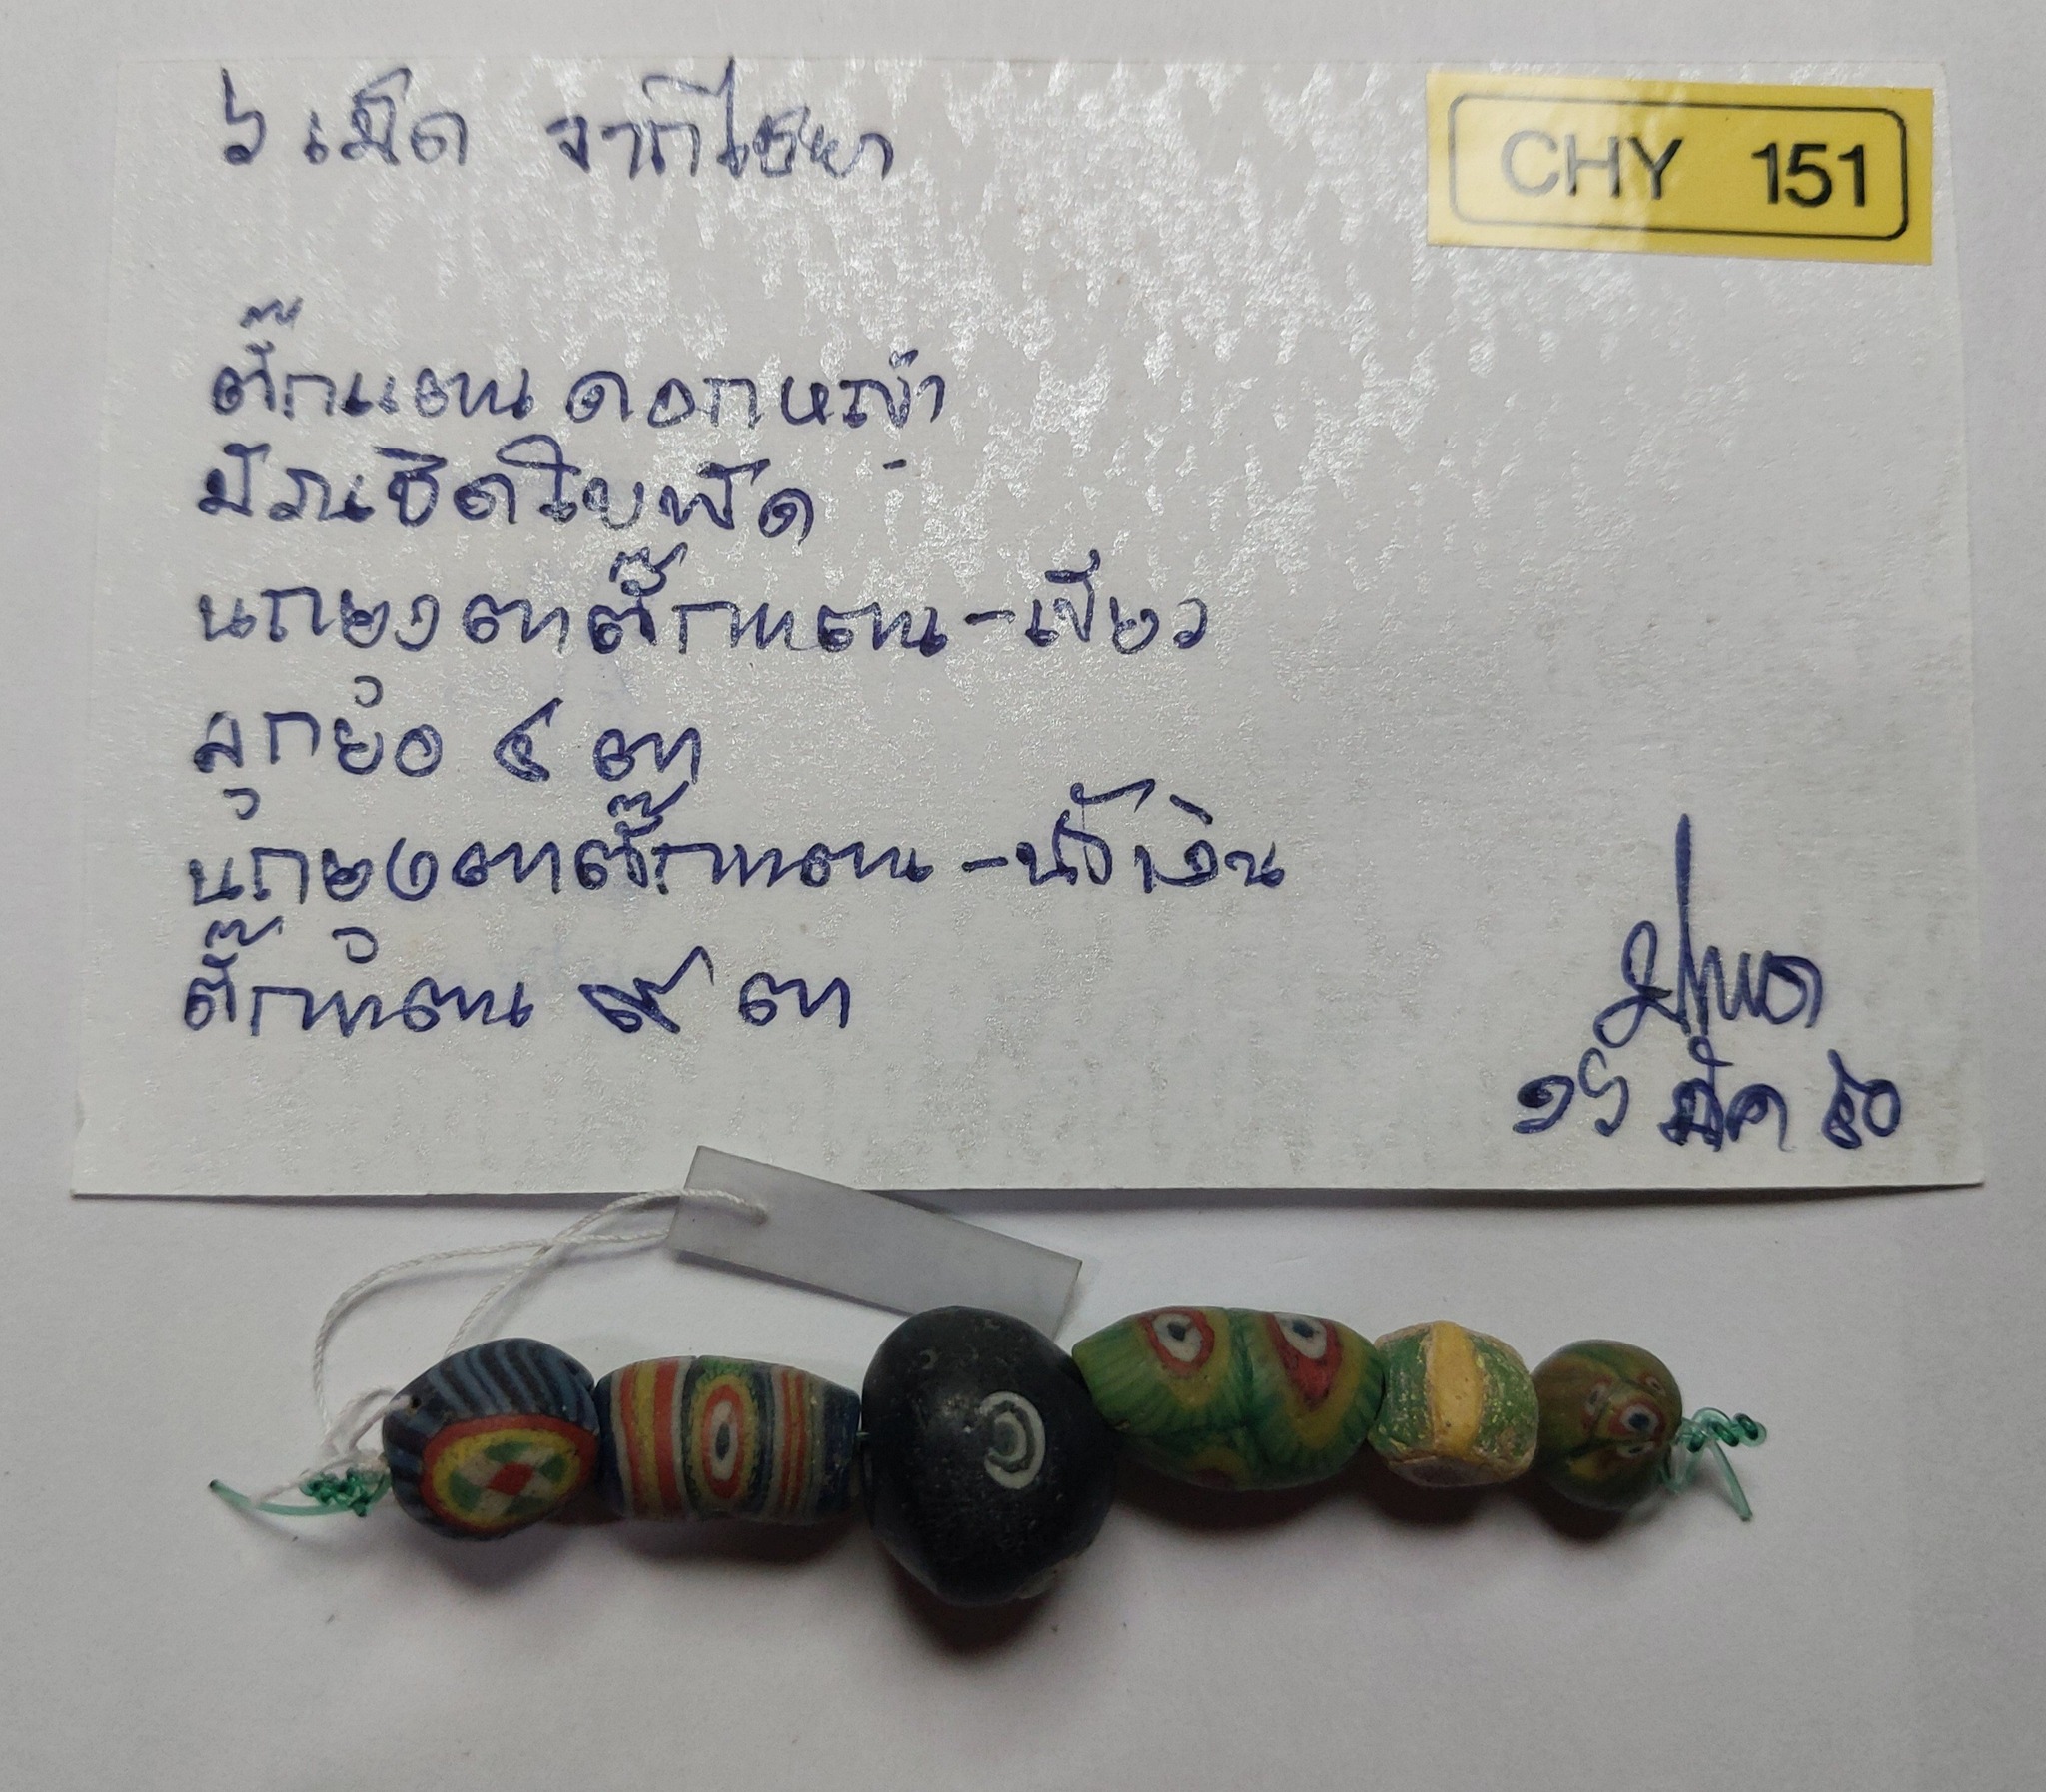 ๖ เม็ด จากไชยา
CHY 151
ตั๊กแตน ดอกหญ้า
นกยูงตาตั๊กแตน-เขียว
ลูกยอ ๔ ตา
นกยูงตาตั๊กแตน-น้ำเงิน
ตั๊กแตน ๙ ตา
๑๖ มีค ๖๐